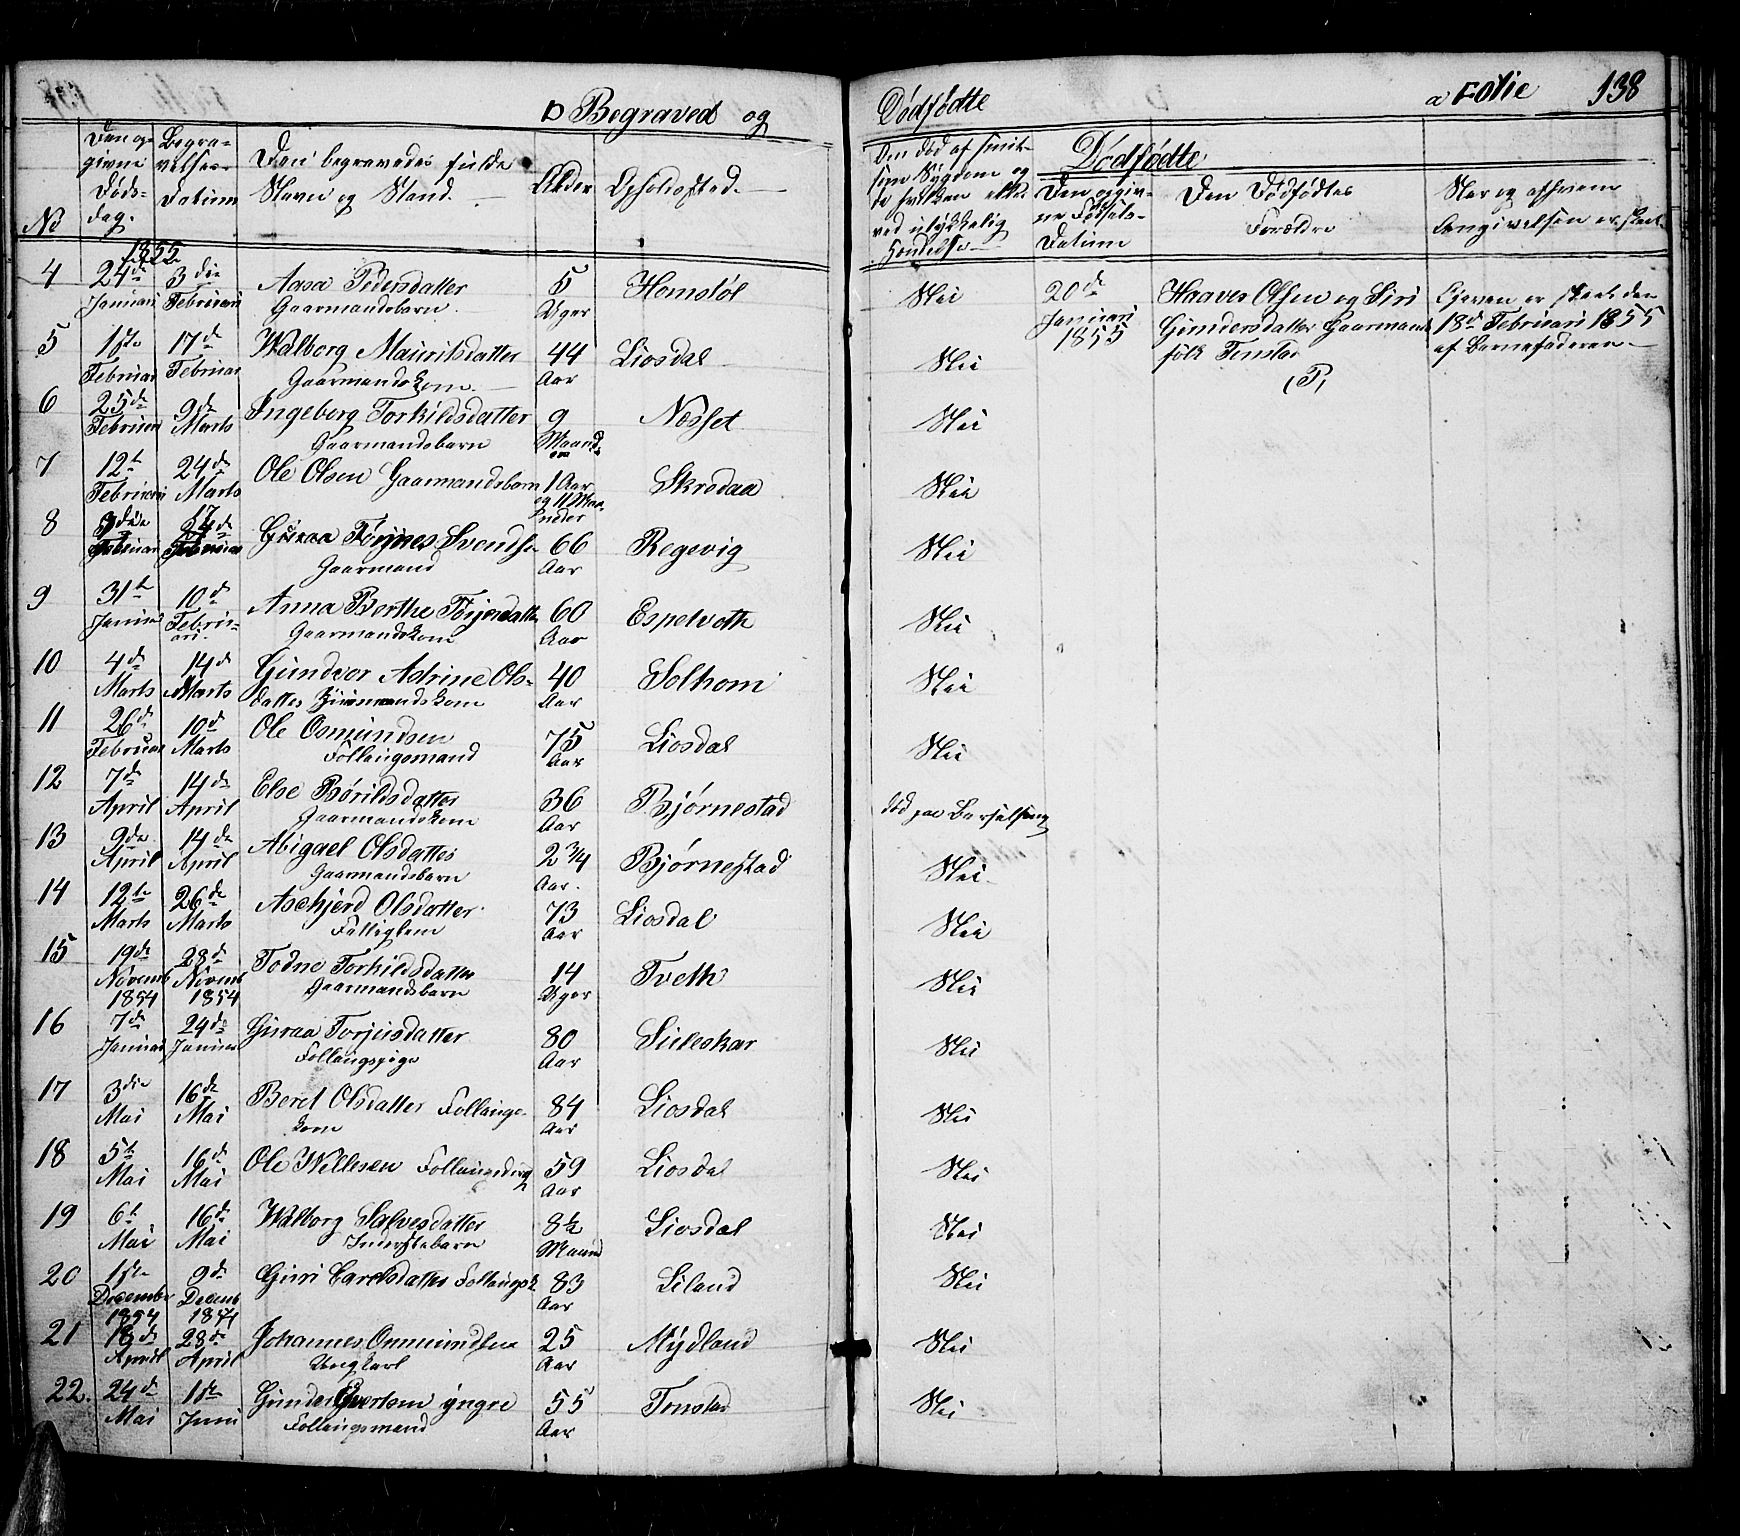 D Begraved og Dødfødte
a Folie 138
No
Den op-
givne
Døds-
dag.
Begra-
velses-
Datum
Den begravedes fulde
Navn og Stand.
Alder
Opholdssted.
Den død af smit-
som Sygdom og
ved ulykkelig
Hændelse
Dødfødte
Den opgiv-
ne Fødsels-
Datum
Den Dødfødtes
Forældre
Naar og af hvem
Angivelsen er skeet
1855
4 24de Januari 3die Februari Aasa Pedersdatter Gaarmandsbarn 5 Uger Homstøl Nei
20de Januari 1855 Haaver Olsen og Siri Gundersdatter Gaarmandsfolk Tonstad (P) Opgaven er skeet den 18de Februari 1855 af Barnefaderen
5 1ste Februar 17de Februar Walborg Mauritsdatter Gaarmandskone 44 Aar Liosdal Nei
6 25de Februar 9de Marts Ingeborg Torkildsdatter Gaarmandsbarn 9 Maaneder Nesset Nei
7 12te Februari 24de Marts Ole Olsen Gaarmandsbarn 1 Aar og 11 Maaneder Skredaa Nei
8 3die Februar 17de Februar Guraa Tørjines Svendsen Gaarmand 66 Aar Regevig Nei
9 31te Januar 10de Februari Anna Berthe Tørjersdatter Gaarmandskone 60 Aar Espetveth Nei
10 4de Marts 14de Marts Gundvor Asirine Olsdatter Huusmandskone 40 Aar Solhom Nei
11 26de Februar 10de Marts Ole Osmundsen Follaugsmand 75 Aar Liosdal Nei
12 7de April 14de April Else Børildsdatter Gaarmandskone 36 Aar Bjørnestad død paa Barselseng
13 9de April 14de April Abigael Olsdatter Gaarmandsbarn 2 3/4 Aar. Bjørnestad Nei
14 12te Marts 26de Marts Aschjerd Olsdatter Fattiglem 73 Aar Liosdal Nei
15 19de Novemb 1854 28de Novemb 1854 Todne Torkildsdatter Gaarmandsbarn 14 Uger Tveth Nei
16 7de Januar 24de Januar Guraa Torjusdatter Follaugspige 80 Aar Sirleskar Nei
17 3die Mai 16de Mai Beret Olsdatter Follaugskone 84 Aar Liosdal Nei
18 5te Mai 16de Mai Ole Willesen Follaugsdreng 59 Aar Liosdal Nei
19 6te Mai 16de Mai Walborg Salvesdatter Inderstebarn 8½ Maaned Liosdal Nei
20 1ste December 1854 9de Decemb 1854 Guri Carelsdatter Follaugsk 83 Aar Liland Nei
21 18de April 28de April Johannes Ommundsen Ungkarl 25 Aar Mydland Nei
22. 24de Mai 1ste Juni Gunder Evertsen yngre Follaugsmand 55 Aar Tonstad Nei